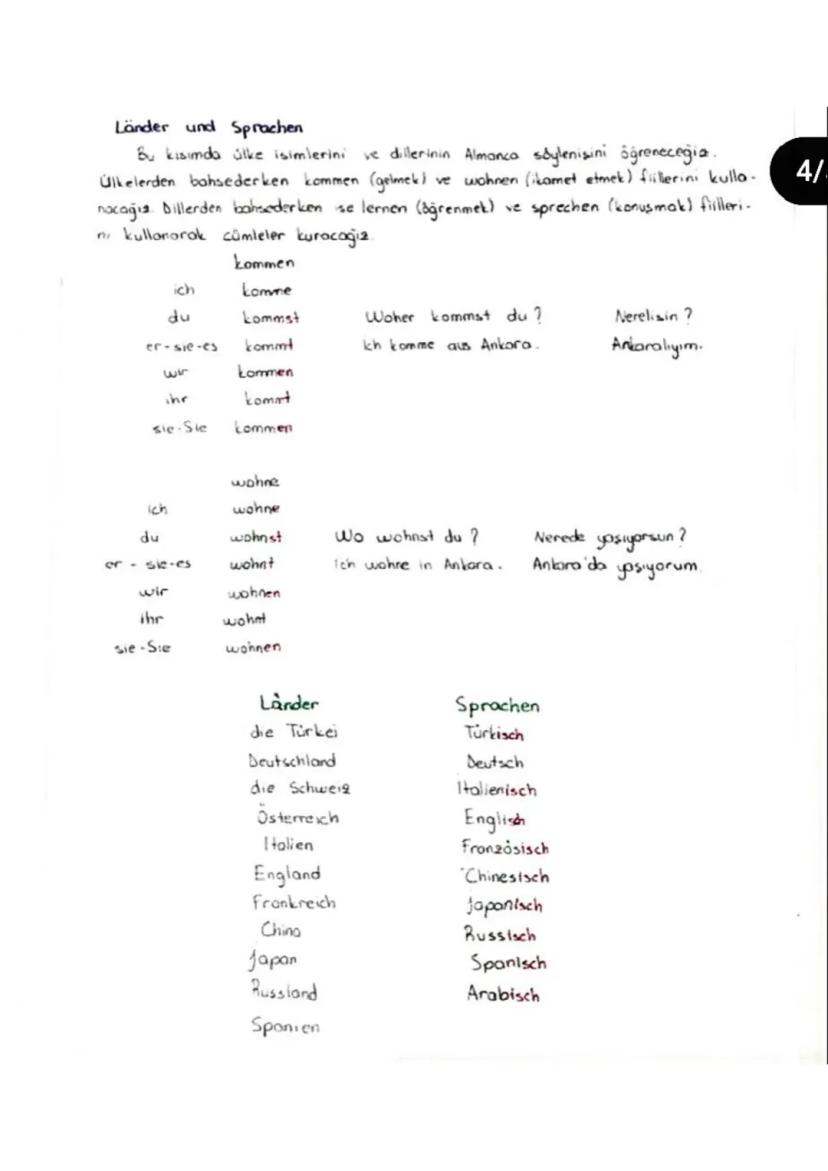 Länder und Sprachen
Bu kısımda ülke isimlerini ve dillerinin Almanca söylenişini öğreneceğiz.
Ülkelerden bahsederken kommen (gelmek) ve wohnen (ikamet etmek) fiillerini kulla-
nacağız. Dillerden bahsederken ise lernen (öğrenmek) ve sprechen (konuşmak) fiilleri-
ni kullanarak cümleler kuracağız.
4/
kommen
ich komme
du kommst Woher kommst du? Nerelisin?
er-sie-es kommt Ich komme aus Ankara. Ankaralıyım.
wir kommen
ihr kommt
sie-Sie kommen
wohne
ich wohne
du wohnst Wo wohnst du? Nerede yaşıyorsun?
er - sie-es wohnt Ich wohne in Ankara. Ankara'da yaşıyorum.
wir wohnen
ihr wohnt
sie-Sie wohnen
Länder Sprachen
die Türkei Türkisch
Deutschland Deutsch
die Schweiz Italienisch
Österreich Englisch
Italien Französisch
England Chinesisch
Frankreich Japanisch
China Russisch
Japan Spanisch
Russland Arabisch
Spanien